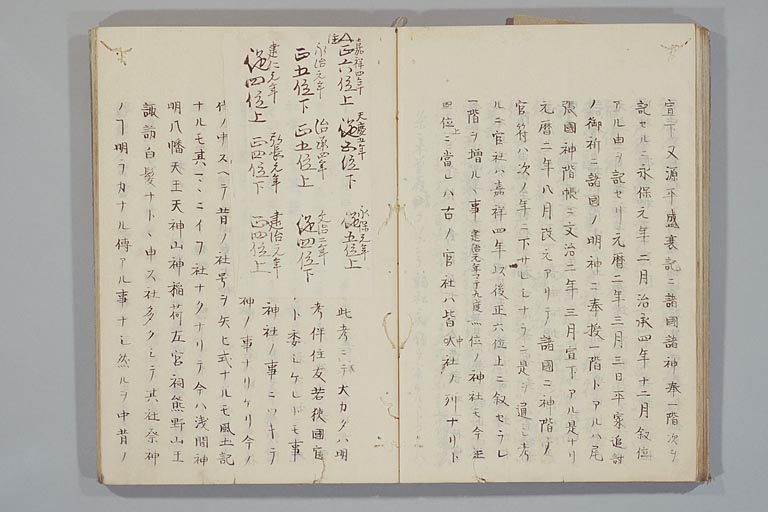 宣下又源平盛衰記ニ諸國諸神奉一階次ヲ
記セルニ永保元年二月治承四年十二月叙位
アル由ヲ記セリ元暦二年三月三日平家追討
ノ御祈ニ諸國ノ明神ニ奉授一階トアルハ尾
張國神階帳ニ文治二年三月宣下アル是ナリ
元暦二年八月改元アリテノ諸國ニ神階ノ
官符ハ次ノ年ニ下サレシナラン是ヲ通シ考
ルニ官社ハ嘉祥四年以後正六位上ニ叙セラレ
一階ヲ増ルヽ事建治元年マテ九度無位ノ神社モ今正
四位上ニ當レハ古ノ官社ハ皆大中社ノ列ナリト
嘉祥四年 正六位上 天慶五年 從五位下 永保元年 從五位上
永治元年 正五位下 治承四年 正五位上 文治二年 從四位下
建仁元年 從四位上 弘長元年 正四位下 建治元年 正四位上
此考ニテ大カタハ明
考伴信友若狭國官
ト委シケレトモ事
神社ノ事ニツキテ
神ノ事ナリケリ今ノ
代ノ中スヘテ昔ノ社号ヲ失ヒ式ナルモ風土記
ナルモ其マヽニイフ社ナクナリテ今ハ浅間神
明八幡天王天神山神稲荷左宮祠熊野山王
諏訪白髪ナトヽ申ス社多クシテ其社祭神
ノ明ラカナル傳アル事ナシ然ルヲ中昔ノ